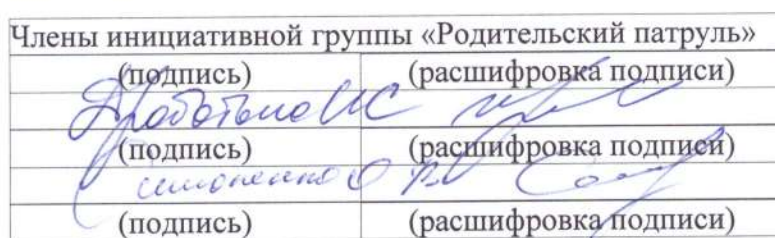 Члены инициативной группы «Родительский патруль»
(подпись) (расшифровка подписи)
(подпись) (расшифровка подписи)
Симоненко О
(подпись) (расшифровка подписи)